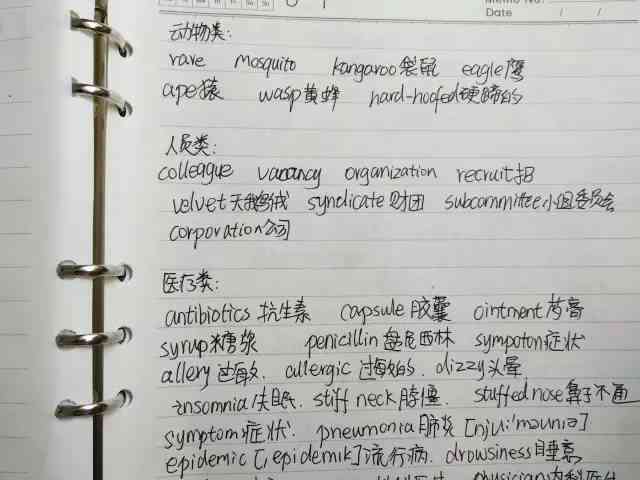 Memo No.
Date / /
动物类:
rave mosquito kangaroo袋鼠 eagle鹰
ape猿 wasp黄蜂 hard-hoofed硬蹄的
人员类:
colleague vacancy organization recruit招
velvet天鹅绒 syndicate财团 subcommittee小组委员会
corporation公司
医疗类:
antibiotics抗生素 capsule胶囊 ointment药膏
syrup糖浆 penicillin盘尼西林 sympoton症状
allery过敏. allergic过敏的. dizzy头晕
insomnia失眠. stiff neck脖僵 stuffed nose鼻子不通
symptom症状. pneumonia肺炎[njuːˈməʊniə]
epidemic[ˌepidemik]流行病. drowsiness睡意
physician内科医生